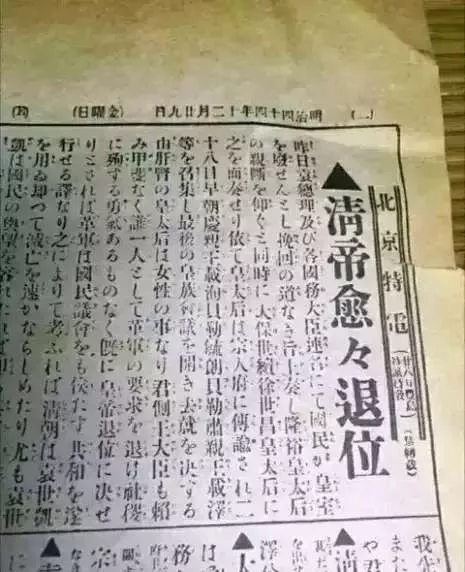 (一) 明治四十四年十二月廿九日 (金曜日)
北京特電
▲清帝愈々退位
昨日袁總理及び各國務大臣連合にて國民が皇室
を廢せんとし挽回の道なき旨上奏し隆裕皇太后
の親斷を仰ぐと同時に太保世續徐世昌皇太后に
之を面奏せり依て皇太后は宗人府に傳諭され二
十八日早朝慶親王載洵貝勒毓朗貝勒肅親王載澤
等を召集し最後の皇族會議を開き去就を決する
由肝腎の皇太后は女性の事なり君側王大臣も賴
み甲斐なく誰一人として革軍の要求を退け社稷
に殉する勇氣あるものなく既に皇帝退位に決せ
りとされば革軍は國民議會をも俟たす共和を遂
行せる譯なり之によりて考ふれば清朝は袁世凱
を用ゐ却つて滅亡を速かならしめたり尤も袁世
凱は國民の輿望を容れ